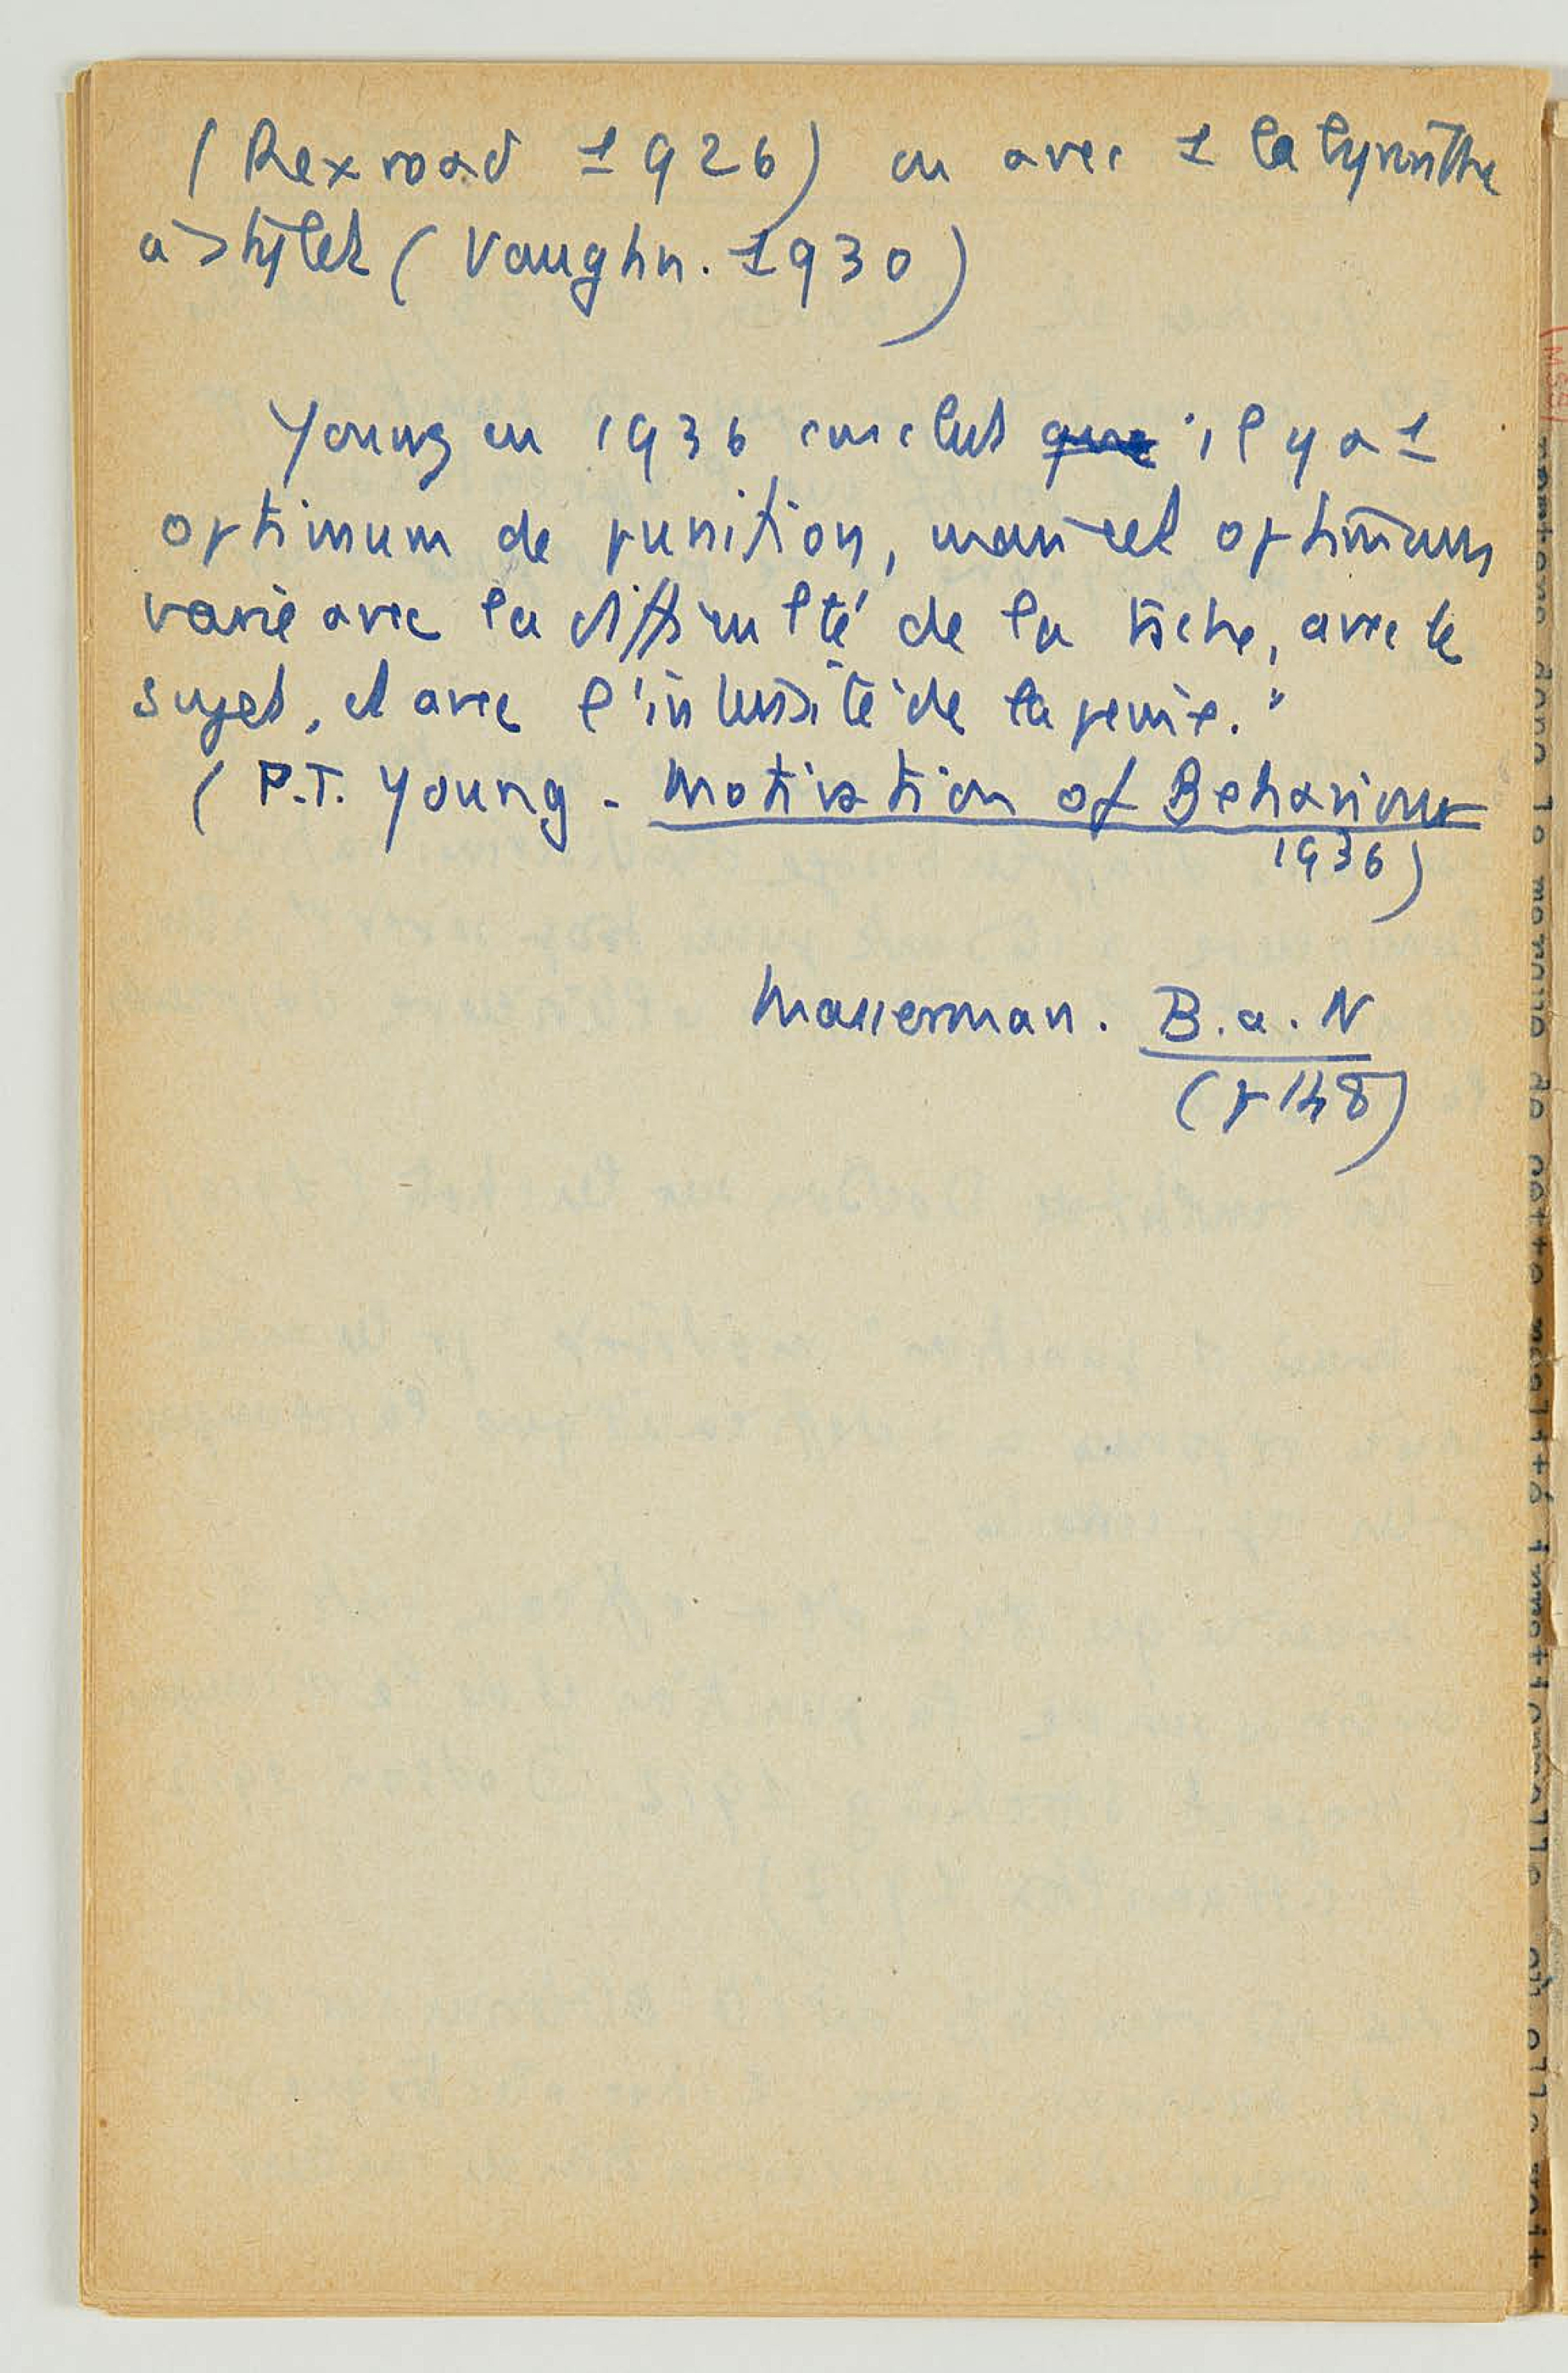 (Rexroad 1926) ou avec 1 labyrinthe
à stylet (Vaughn. 1930)
Young en 1936 conclut que "il y a 1
optimum de punition, mais cet optimum
varie avec la difficulté de la tâche, avec le
sujet, et avec l'intensité de la peine."
(P.T. Young - Motivation of Behaviour
1936)
Masserman. B.a.N
(p 148)